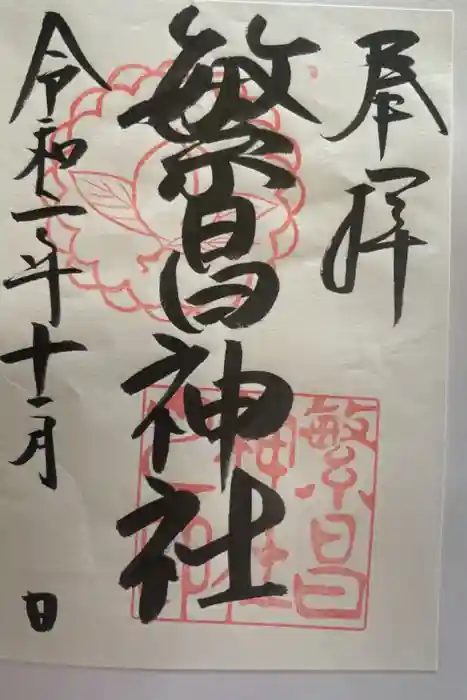 奉拝
繁昌神社
令和二年十一月 日
繁昌
神社
之印